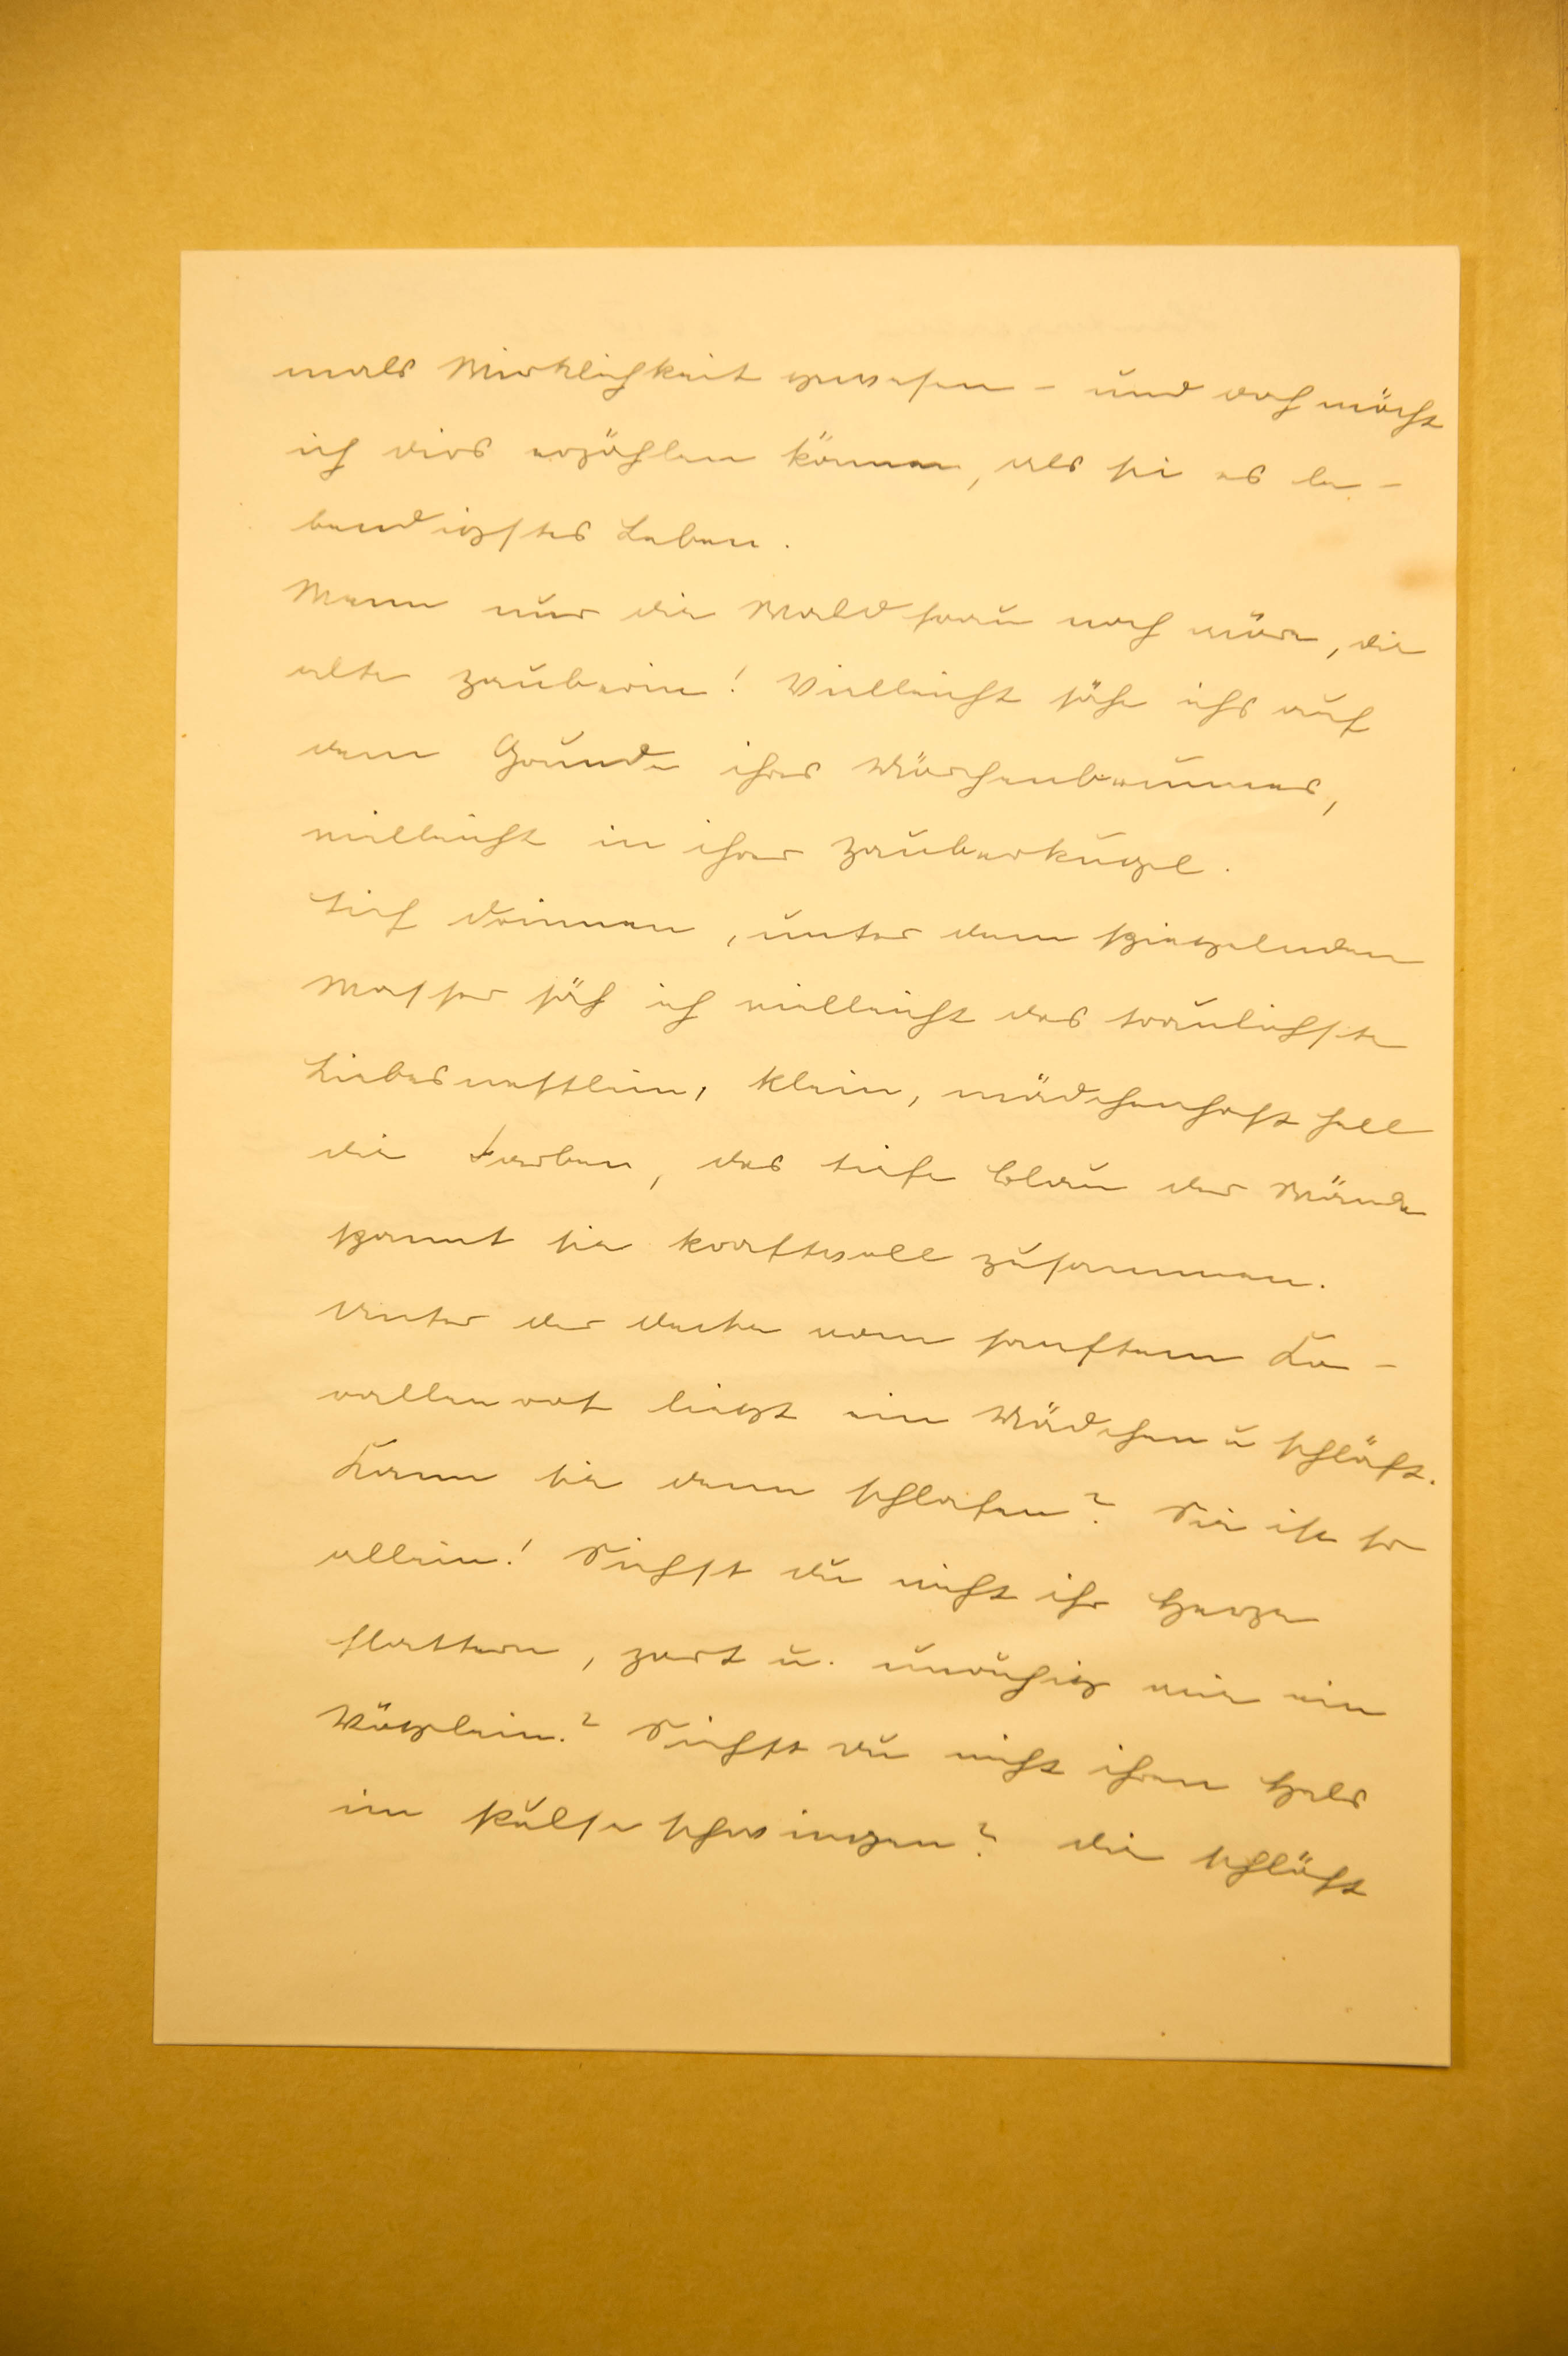 mals Wirklichkeit gewesen – und doch möcht
ich dirs erzählen können, als sei es le-
bendigstes Leben.
Wenn nur die Waldfrau noch wäre, die
alte Zauberin! Vielleicht sähe ichs auf
dem Grunde ihres Märchenbrunnens,
vielleicht in ihrer Zauberkugel.
Tief drinnen, unter dem spiegelnden
Wasser säh ich vielleicht das traulichste
Liebesnestlein, klein, mädchenhaft hell
die Farben, das tiefe Blau der Wände
spannt sie kraftvoll zusammen.
Unter der Decke vom sanftem Ko-
rallenrot liegt ein Mädchen u schläft.
Kann sie denn schlafen? Sie ist so
allein! Siehst du nicht ihr Herze
flattern, zart u. unruhig wie ein
Vöglein? Siehst du nicht ihren Hals
im Pulse schwingen? Die schläft